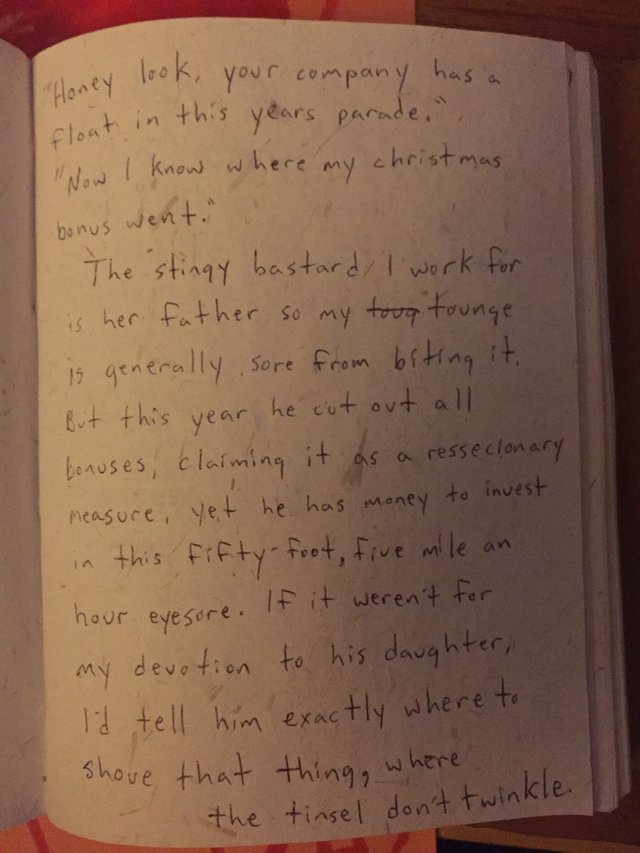 "Honey look, your company has a
float in this years parade."
"Now I know where my christmas
bonus went."
The stingy bastard I work for
is her father so my toug tounge
is generally sore from biting it.
But this year he cut out all
bonuses, claiming it as a ressecionary
measure, yet he has money to invest
in this fifty-foot, five mile an
hour eyesore. If it weren't for
my devotion to his daughter,
I'd tell him exactly where to
shove that thing, where
the tinsel don't twinkle.